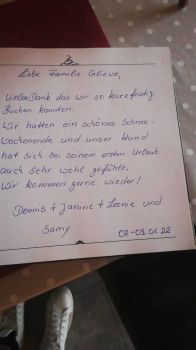 Liebe Familie Geliewe,
Vielen Dank das wir so kurzfristig
Buchen konnten.
Wir hatten ein schönes Schnee-
wochenende und unser Hund
hat sich bei seinem ersten Urlaub
auch sehr wohl gefühlt.
Wir kommen gerne wieder!
Dennis + Janine + Leonie und
Samy
08-09.01.22